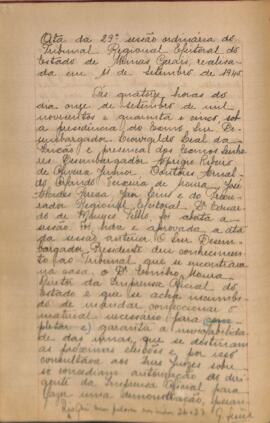 Ata da 29ª sessão ordinária do
Tribunal Regional Eleitoral do
Estado de Minas Gerais, realisa-
da em 11 de setembro de 1945.
Às quatorze horas do
dia onze de setembro de mil
novecentos e quarenta e cinco, sob
a presidencia do Exmo. Snr. De-
sembargador Leal da
e presença dos Exmos. Senho-
res Desembargador Aprigio Ribeiro
de Oliveira Junior, Doutores Arnal-
do Moura, José
e do Procu-
rador Regional Eleitoral Dr. Edmar-
do de Menezes Filho, foi aberta a
sessão. Foi lida e aprovada a ata
da sessão anterior. O Snr. Desem-
bargador Presidente deu conhecimen-
to ao Tribunal que se encontrava
na casa, o Dr. Moura,
Diretor da Imprensa Oficial do
Estado e que se acha incumbi-
do de mandar confeccionar o
material necessário (para com-
pletar e) garantir a inviolabilida-
de das urnas, que se destinam
às proximas eleições e por isso
consultava aos Snrs. Juizes sobre
se concediam autorização ao diri-
gente da Imprensa Oficial para
fazer uma demonstração, quan-